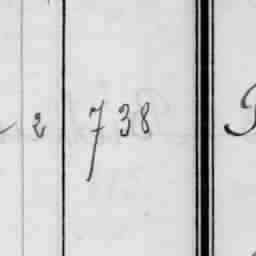 2 738